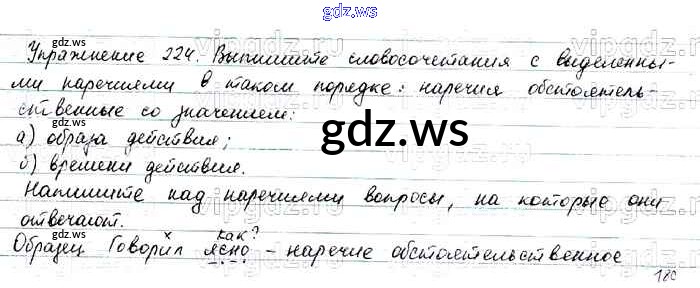 gdz.ws
gdz.ws
gdz.ws
Упражнение 224. Выпишите словосочетания с выделенны-
ми наречиями в таком порядке: наречия обстоятель-
ственные со значением:
а) образа действия;
gdz.ws
б) времени действия.
Напишите над наречиями вопросы, на которые они
отвечают.
х как?
Образец Говорил ясно – наречие обстоятельственное
180